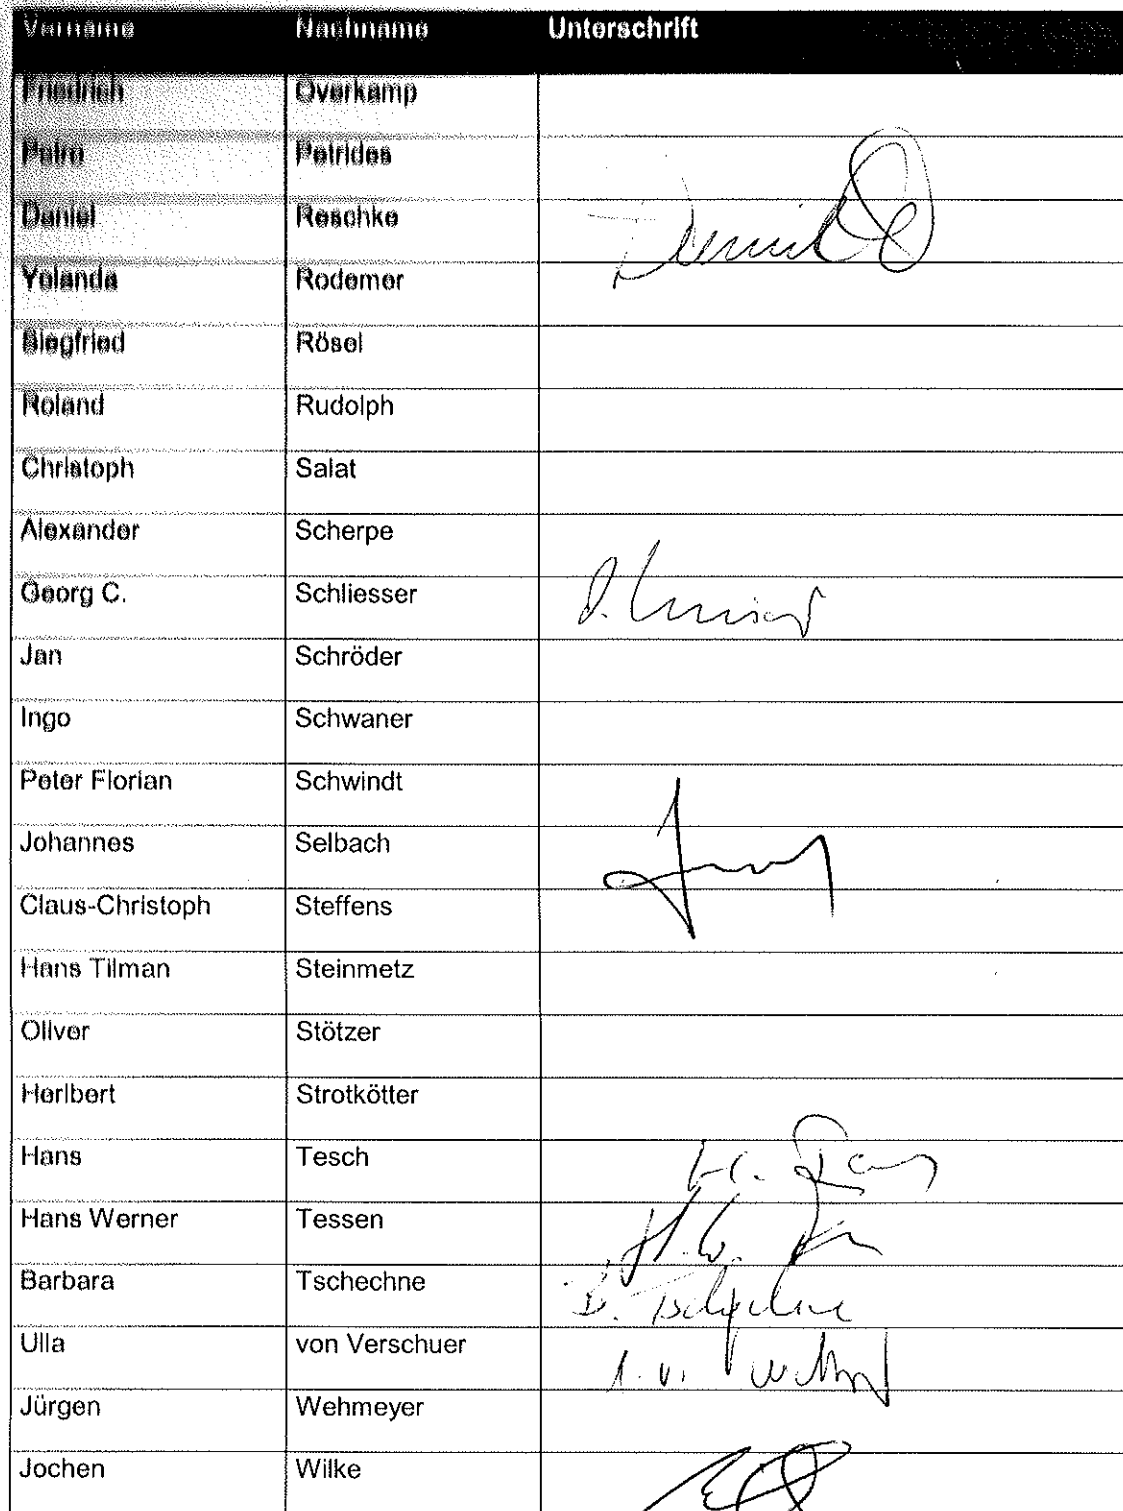 Vorname Nachname Unterschrift
Friedrich Overkamp
Petro Petrides
Daniel Reschke
Yolanda Rodemer
Siegfried Rösel
Roland Rudolph
Christoph Salat
Alexander Scherpe
Georg C. Schliesser
Jan Schröder
Ingo Schwaner
Peter Florian Schwindt
Johannes Selbach
Claus-Christoph Steffens
Hans Tilman Steinmetz
Oliver Stötzer
Heribert Strotkötter
Hans Tesch
Hans Werner Tessen H.W.
Barbara Tschechne B. Tschechne
Ulla von Verschuer
Jürgen Wehmeyer
Jochen Wilke